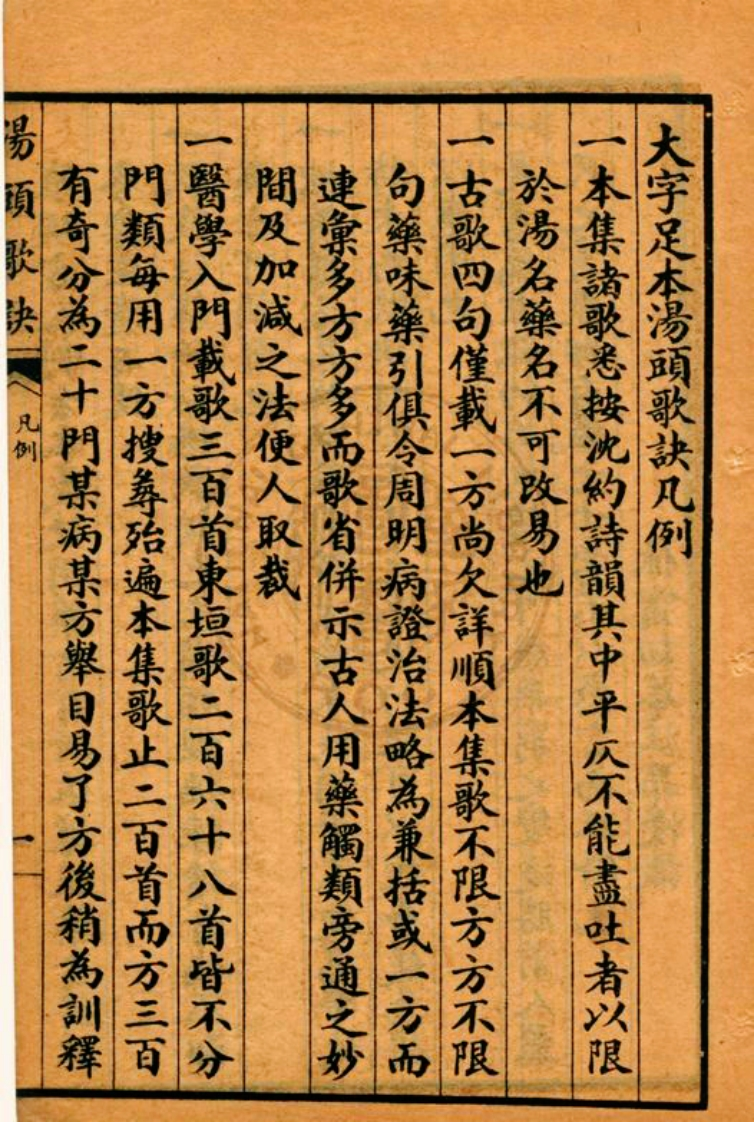 大字足本湯頭歌訣凡例
一本集諸歌悉按沈約詩韻其中平仄不能盡吐者以限
於湯名藥名不可改易也
一古歌四句僅載一方尚欠詳順本集歌不限方方不限
句藥味藥引俱令周明病證治法略為兼括或一方而
連彙多方方多而歌省併示古人用藥觸類旁通之妙
間及加減之法便人取裁
一醫學入門載歌三百首東垣歌二百六十八首皆不分
門類每用一方搜尋殆遍本集歌止二百首而方三百
有奇分為二十門某病某方舉目易了方後稍為訓釋
湯頭歌訣
凡例
一